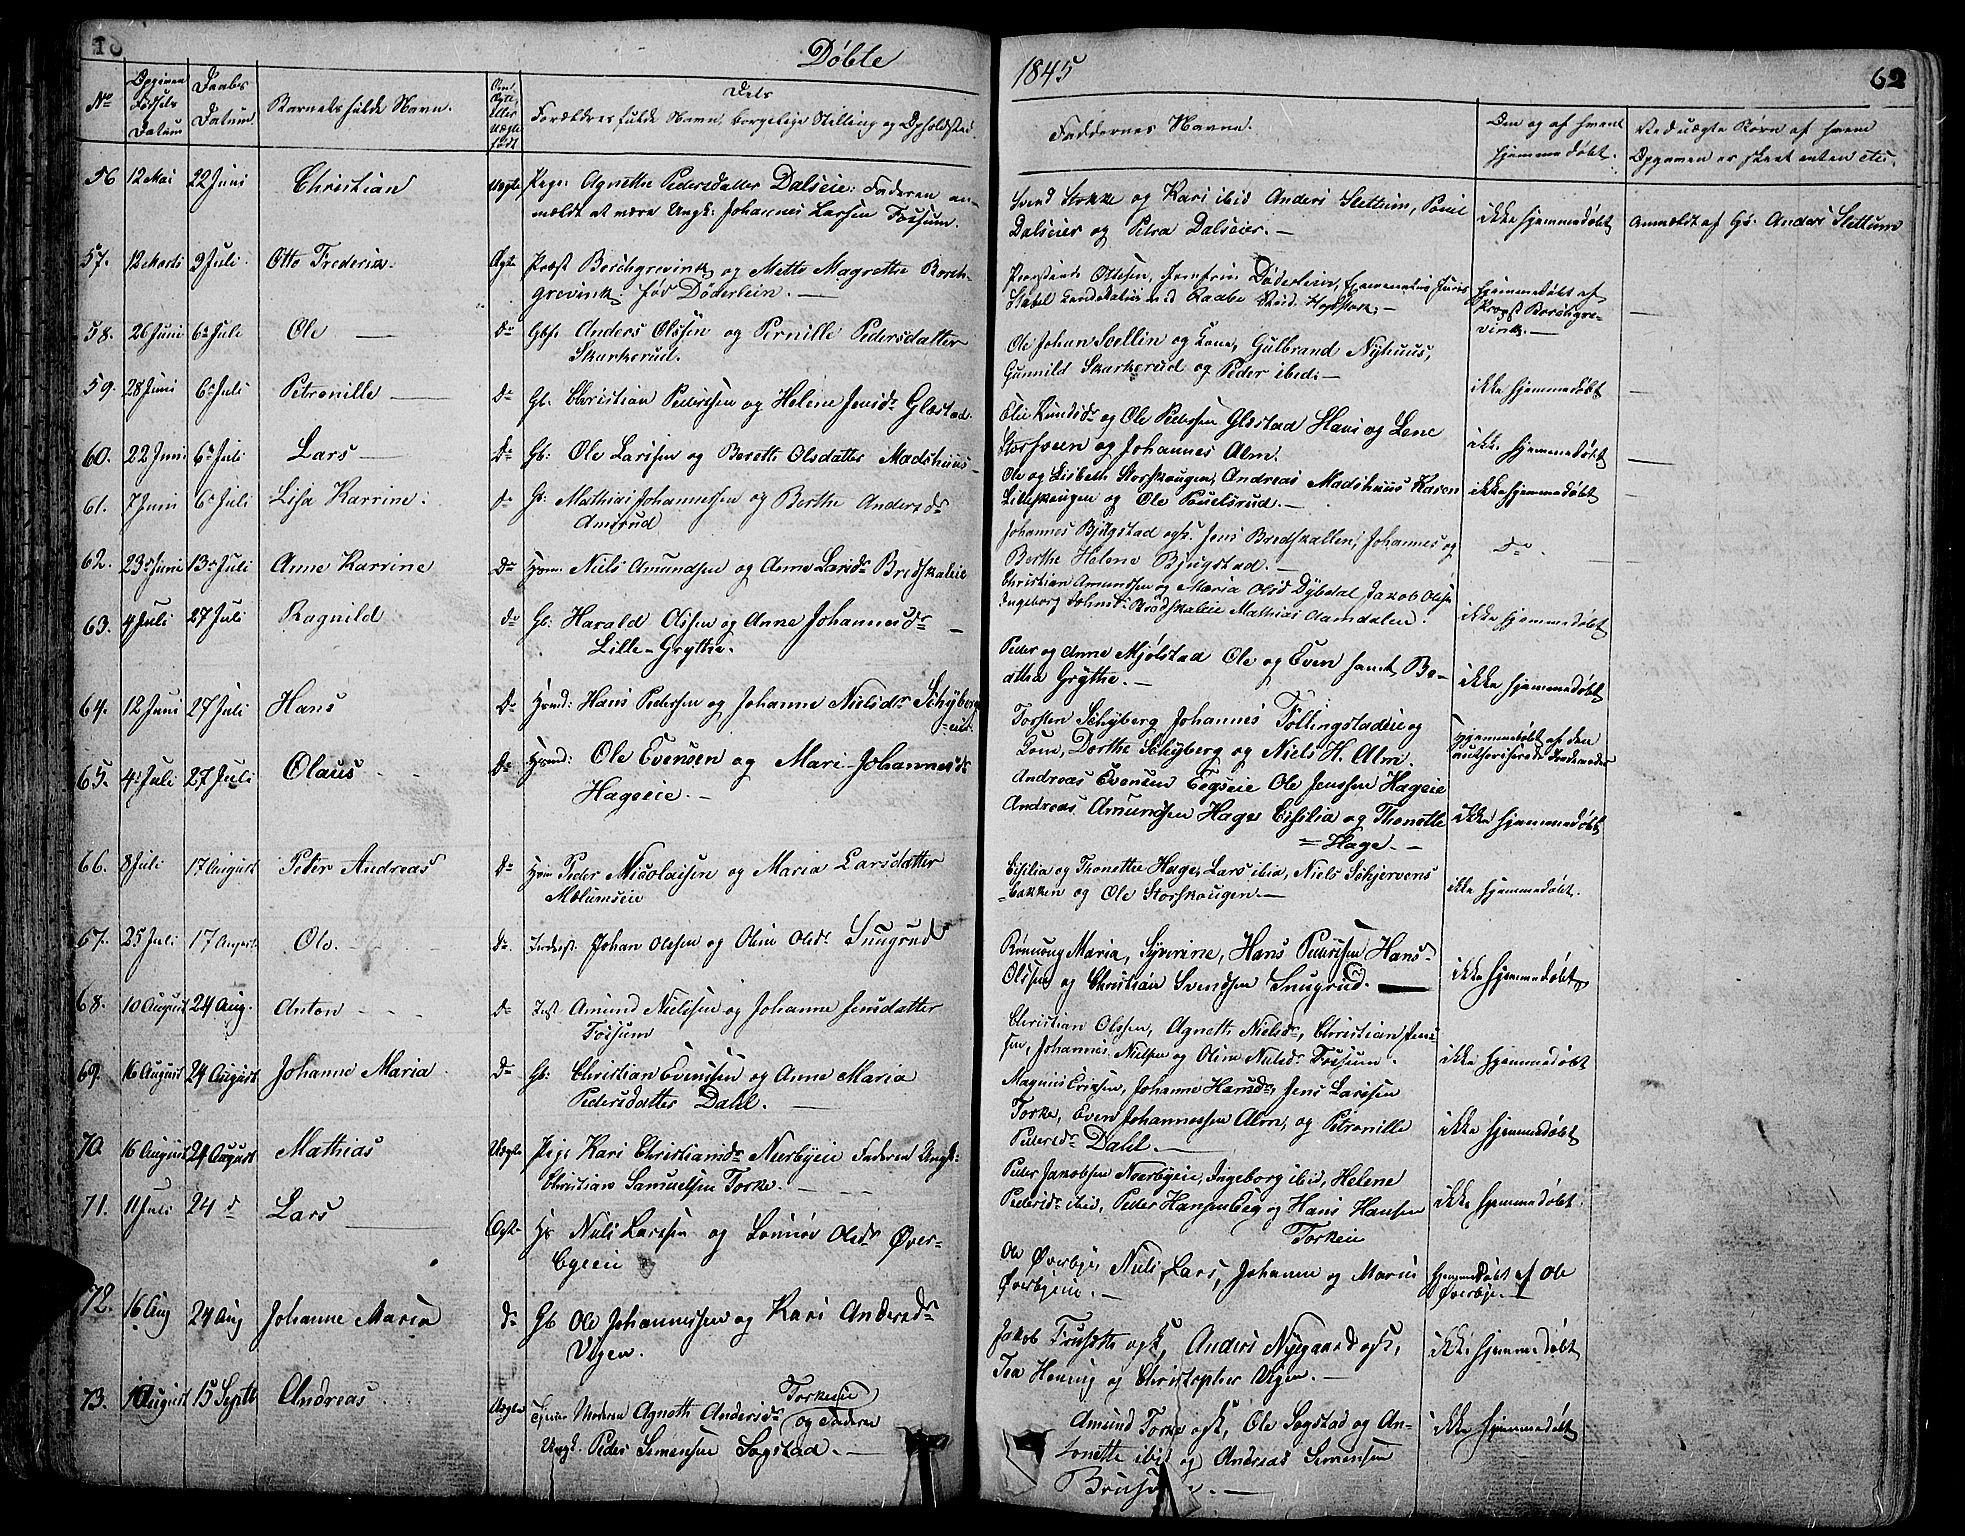 Døbte
1845
62
No
Opgivne Fødsels Datum
Daabs Datum
Barnets fulde Navn.
Om Ægte eller Uægte født
Dets
Forældres fulde Navn, borgerlige Stilling og Opholdsted.
Faddernes Navne.
Om og af hvem hjemmedøbt.
Ved uægte Børn af hvem Opgaven er skeet enten etc.
56 12 Mai 22 Juni Christian Uægte Pige: Agnethe Pedersdatter Dalseie: Faderen an-
mældt at være Ungk: Johannes Larsen Fossum.
Svend Stokke og Kari ibid Anders Slettum, Poul
Dalseier og Petra Dalseier. —
ikke hjemmedøbt
Anmeldt af Gs: Anders Slettum
57. 12 Marts 9 Juli Otto Frederik. Ægte Præst Borchgrevink og Mette Magrethe Borch-
grevink før Døderlein. —
Døderlein,
hjemmedøbt af
Borchgre-
vink. —
58. 26 Juni 6 Juli Ole — Do Gbf. Anders Olssen og Pernille Pedersdatter
Skarkerud.
Ole Johan Sollin og Lone, Gulbrand Nyhuus,
Gunnild Skarkerud og Peder ibid. —
59. 28 Juni 6 Juli Petronille — Do Gb. Christian Pedersen og Helene Jensdr Glæstad
ikke hjemmedøbt
Ole Pedersen Glæstad Hans og Lene
Storsveen og Johannes Alm.
60. 22 Juni 6 Juli Lars — Do Gb: Ole Larssen og Berethe Olsdatter Madshuus —
ikke hjemmedøbt
Ole og Lisbeth Storskougen, Andreas Madshuus Karen
Lilleskougen og Ole Poulsrud. —
61. 7 Juni 6 Juli Lisa Karrine: Do Gb: Mathias Johannessen og Berthe Andersdr
Amsrud
ikke hjemmedøbt
62. 23 Juni 13 Juli Anne Karrine Do Huusm: Niels Amundsen og Anne Larsdr Bredskaleie
Johannes Bjugstad ogk. Jens Bredskallen, Johannes og
Berthe Helene Bjugstad. —
Do
63. 4 Juli 27 Juli Ragnild Do Gb: Harald Olssen og Anne Johannesdr
Lille-Grythe.
Christian Amundsen og Maria Olsd Dybdal Jakob Olsen
Ingeborg Johnsd Brødskaleie Mathias Aamdalen.
ikke hjemmedøbt
Peder og Anne Mjølstad Ole og Even samt Be-
athe Grythe. —
ikke hjemmedøbt
64. 12 Juni 27 Juli Hans Do Hans Pedersen og Johanne Nielsdr Schyberg
-eie.
Torsten Schyberg Johannes Föllingstadeie og
Lone, Dorthe Schyberg og Niels H. Alm.
Hjemmedøbt af den
authoriserede Jordemoder
65. 4 Juli 27 Juli Olaus Do Ole Evensen og Mari Johannesdr
Hageeie. —
Andreas Evensen Eegseie Ole Jenssen Hageie
Andreas Amundsen Hage Cisilia og Thonette
= Hage. —
ikke hjemmedøbt
66. 8 Juli 17 August Peter Andreas Do Peder Nicolaisen og Maria Larsdatter
Mælumseie
Cisilia og Thonette Hage, Lars ibid, Niels Schjervens
=bakken og Ole Storskougen. —
ikke hjemmedøbt.
67. 25 Juli 17 August Ole. Do Inderst. Johan Olssen og Oline Olsdr Snugrud
Maria, Syverine, Hans Pedersen Hans
Olssen og Christian Svendsen Snugrud. —
ikke hjemmedøbt
68. 10 August 24 Aug. Anton Do Inst Amund Nielssen og Johanne Jensdatter
Fossum
Christian Olssen, Agnethe Nielsdr, Christian Jens-
sen, Johannes Nielsen og Oline Nielsdr Fossum.
ikke hjemmedøbt
69. 16 August 24 August Johanne Maria Do Gb: Christian Evenssen og Anne Maria
Pedersdatter Dahl. —
Magnus Eriksen, Johanne Hansdr, Jens Larssen
Torke, Even Johannessen Alm, og Petronille
Pedersdr Dahl —
ikke hjemmedøbt
70. 16 August 24 August Mathias Uægte Pige Kari Christiansdr Nærbyeie Faderen Ungk.
Christian Samuelsen Torke.
Peder Jakobsen Nærbyeie, Ingeborg ibid, Helene
Pedersdr ibid, Peder Hansen Eeg og Hans Hansen
Torkeeie
ikke hjemmedøbt
71. 11 Juli 24 d Lars — Ægte Niels Larssen og Lonnov Olsdr Øver-
Egeeie
Ole Øverbye Niels, Lars, Johanne og Maria
Øverbyeie. —
hjemmedøbt af Ole
Øverbye.
72. 16 Aug 24 Aug Johanne Maria Do Gb Ole Johannessen og Kari Andersdr
Vigen.
Jakob Frusethe ogk, Anders Nygaard ogk,
Tea Hennig og Christopher Vigen. —
ikke hjemmedøbt
73. August 15 Septb Andreas. Uægte Moderen Agneth Andersdr Torkeeie
og Faderen
Ungk. Peder Simensen Sogstad. —
Amund Torke ogk, Ole Sogstad og An-
tonette ibid og Andreas Simensen
ikke hjemmedøbt